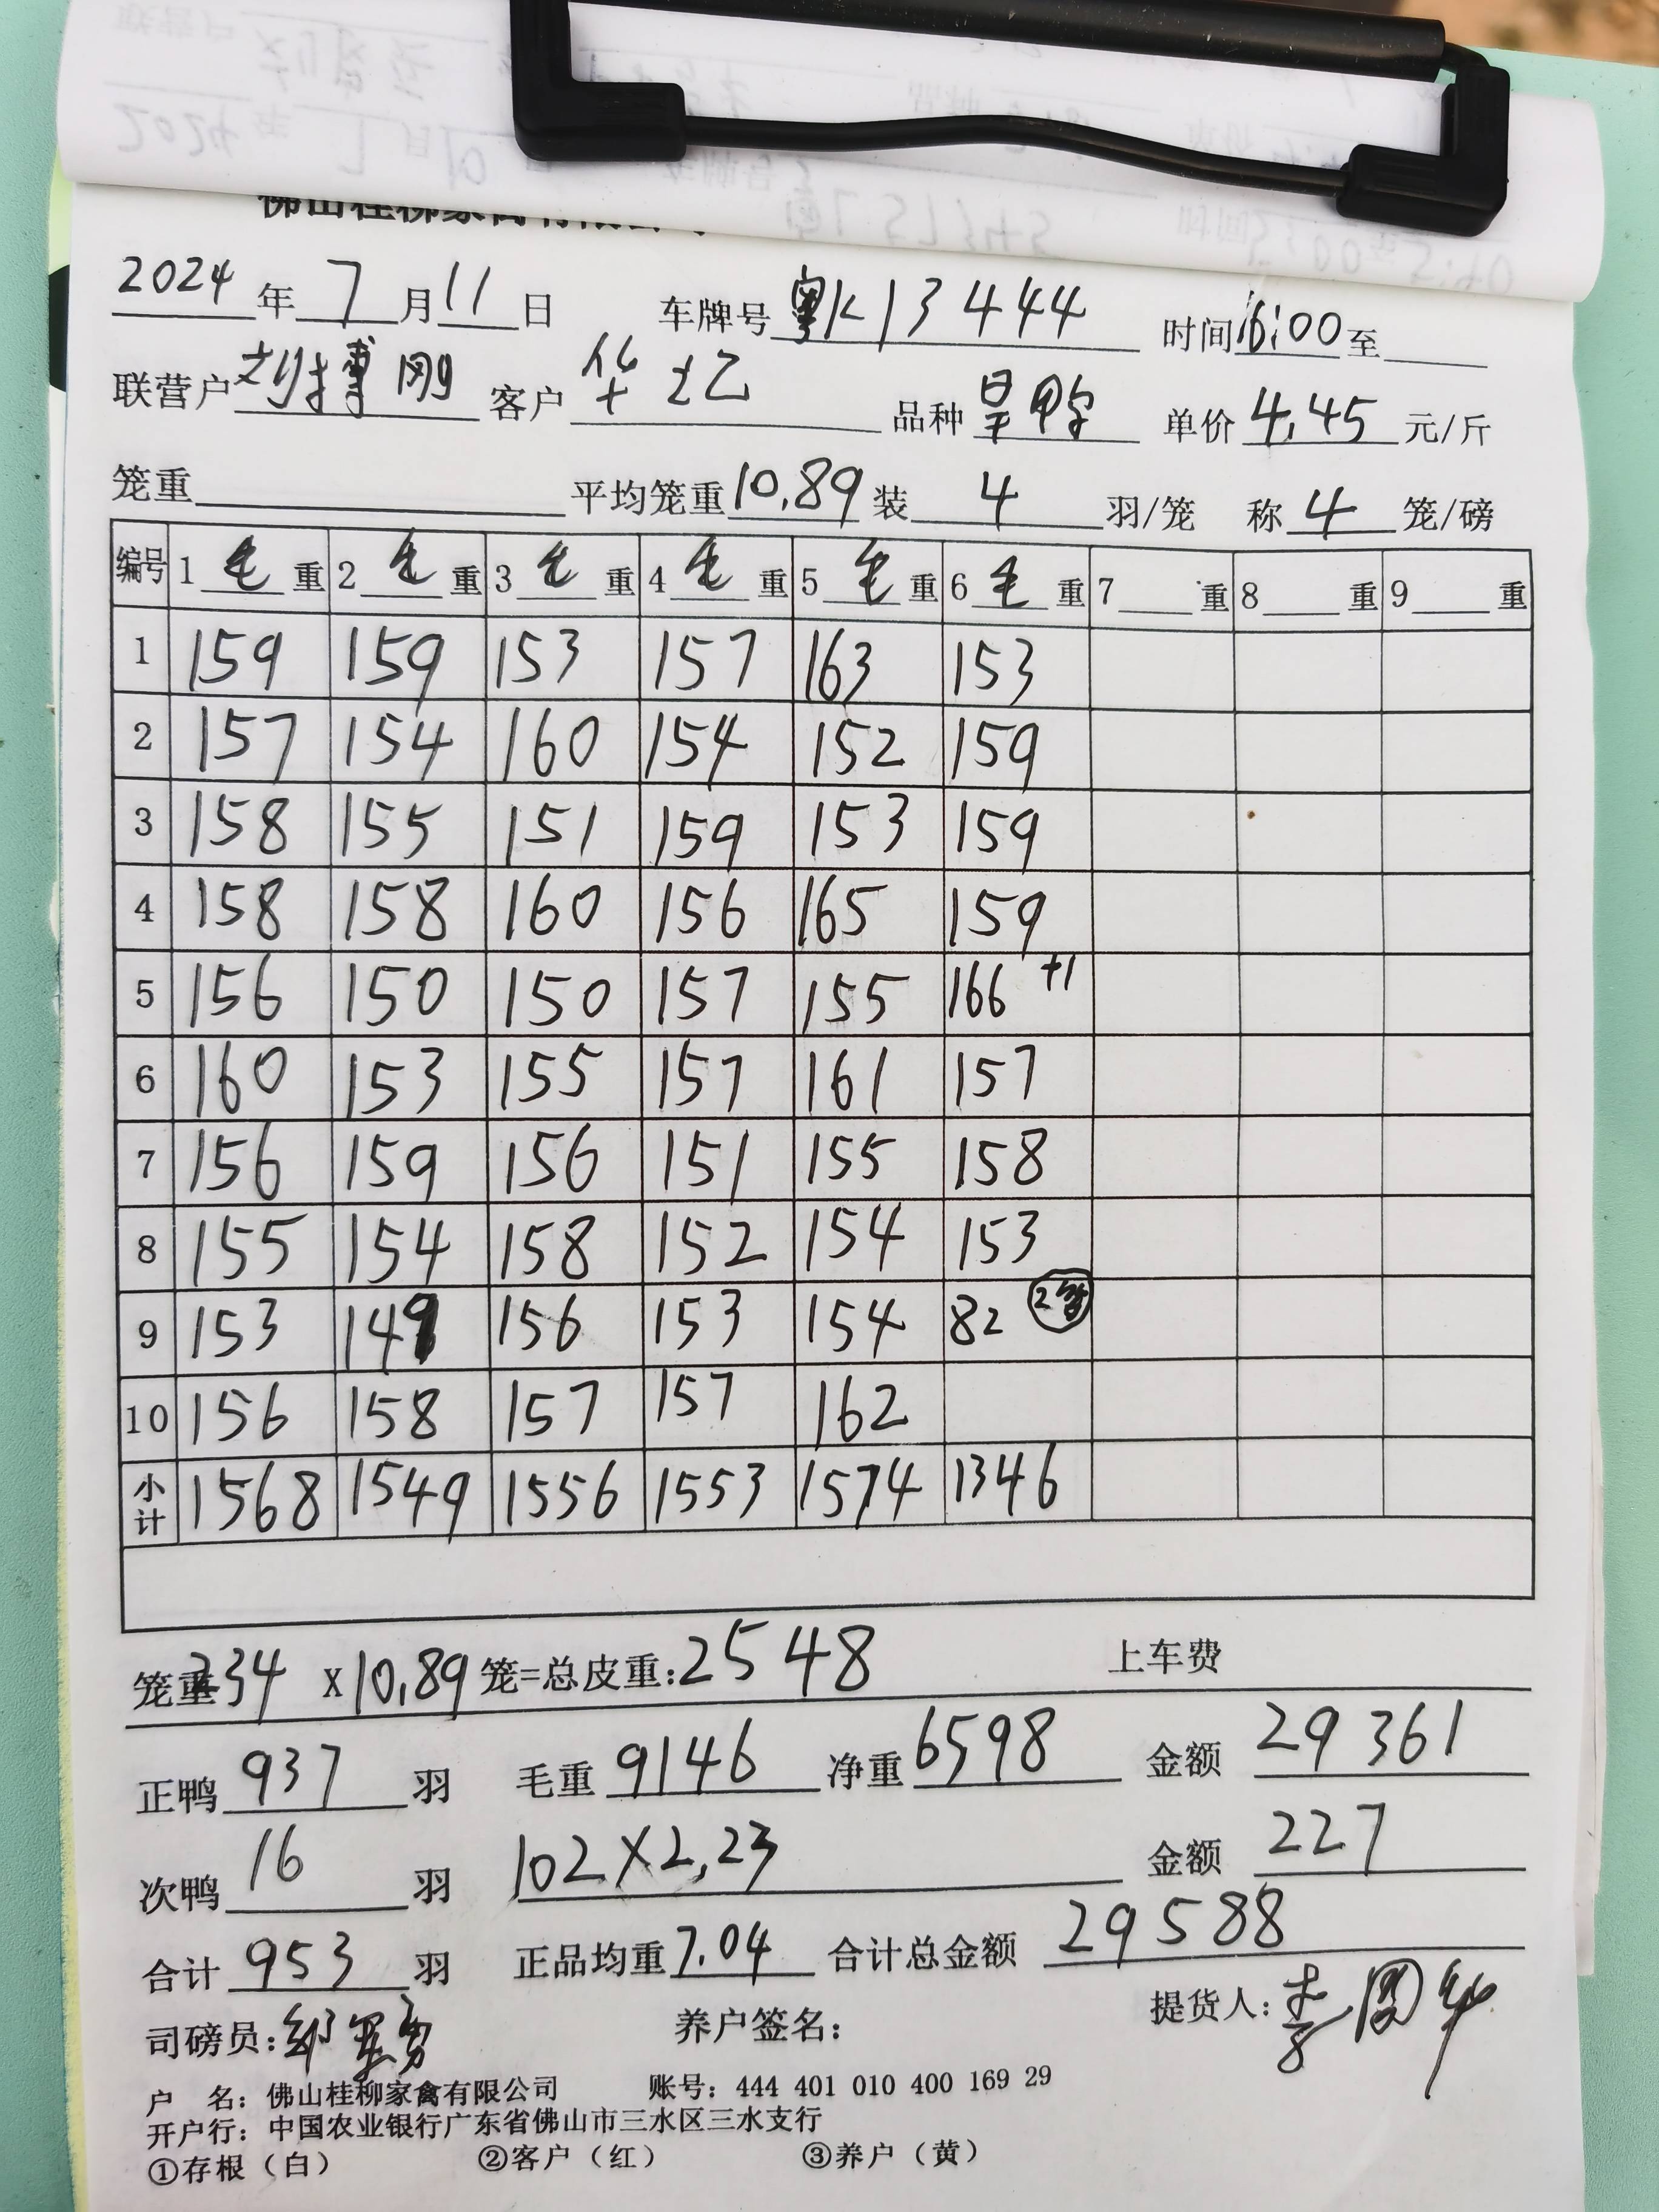 2024年7月11日 车牌号粤K13444 时间16:00至
联营户刘搏刚 客户华 品种呈鸭 单价4.45元/斤
笼重 平均笼重10.89装4羽/笼 称4笼/磅
编号 1毛重 2毛重 3毛重 4毛重 5毛重 6毛重 7重 8重 9重
1 159 159 153 157 163 153
2 157 154 160 154 152 159
3 158 155 151 159 153 159
4 158 158 160 156 165 159
5 156 150 150 157 155 166 +1
6 160 153 155 157 161 157
7 156 159 156 151 155 158
8 155 154 158 152 154 153
9 153 149 156 153 154 82 2
10 156 158 157 157 162
小计 1568 1549 1556 1553 1574 1346
笼重234 x 10.89笼=总皮重:2548 上车费
正鸭937羽 毛重9146 净重6598 金额29361
次鸭16羽 102×2.23 金额227
合计953羽 正品均重7.04 合计总金额29588
司磅员: 养户签名: 提货人:李
户 名: 佛山桂柳家禽有限公司 账号: 444 401 010 400 169 29
开户行: 中国农业银行广东省佛山市三水区三水支行
①存根（白） ②客户（红） ③养户（黄）